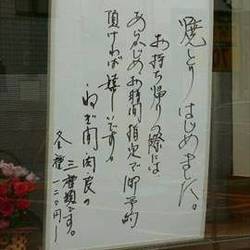 焼とりはじめました。
お持ち帰りの際には
あらかじめお時間指定で御予約
頂ければ嬉しいです。
ねぎ間、肉、皮の
三種類です。
各種一二〇円〜